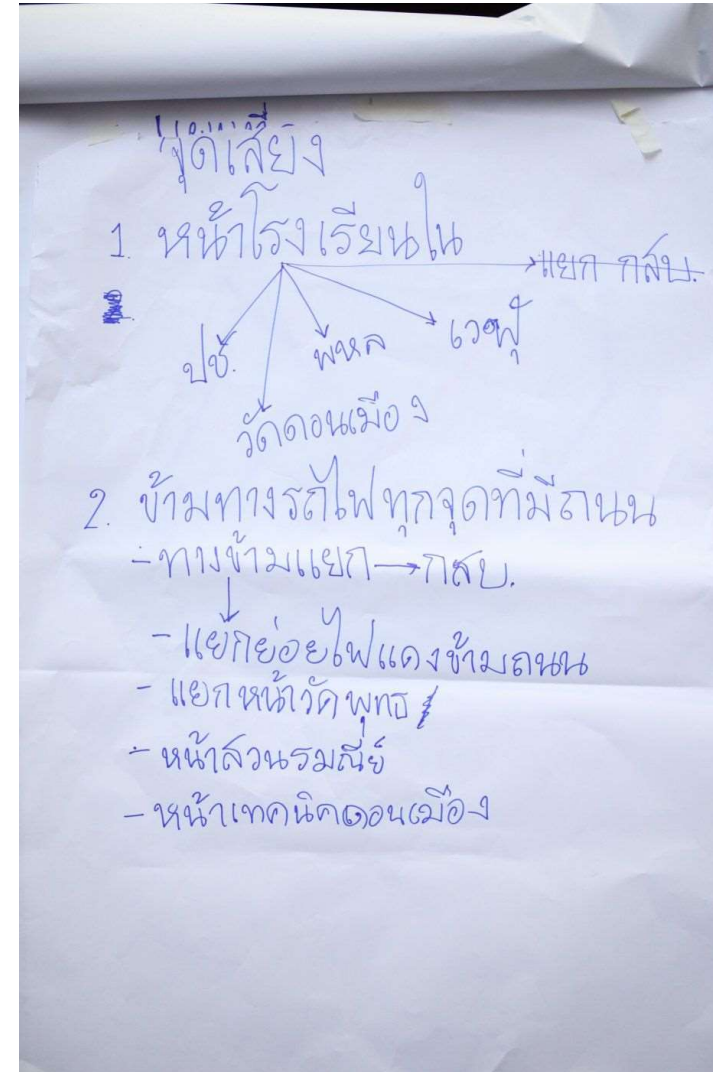 จุดเสี่ยง
1. หน้าโรงเรียนใน
แยก กสบ.
ปช. พหล เวฬุ
วัดดอนเมือง
2. ข้ามทางรถไฟทุกจุดที่มีถนน
- ทางข้ามแยก → กสบ.
- แยกย่อยไฟแดงข้ามถนน
- แยกหน้าวัดพุทธ
- หน้าสวนรมณีย์
- หน้าเทคนิคดอนเมือง